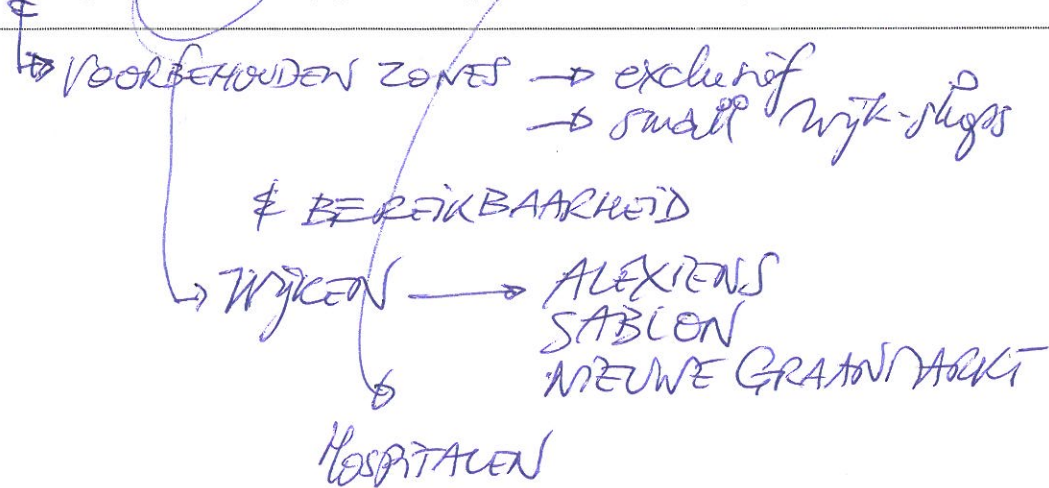 → VOORBEHOUDEN ZONES → exclusief
→ small wijk-shops
& BEREIKBAARHEID
→ WIJKEN → ALEXIENS
SABLON
NIEUWE GRAANMARKT
HOSPITALEN